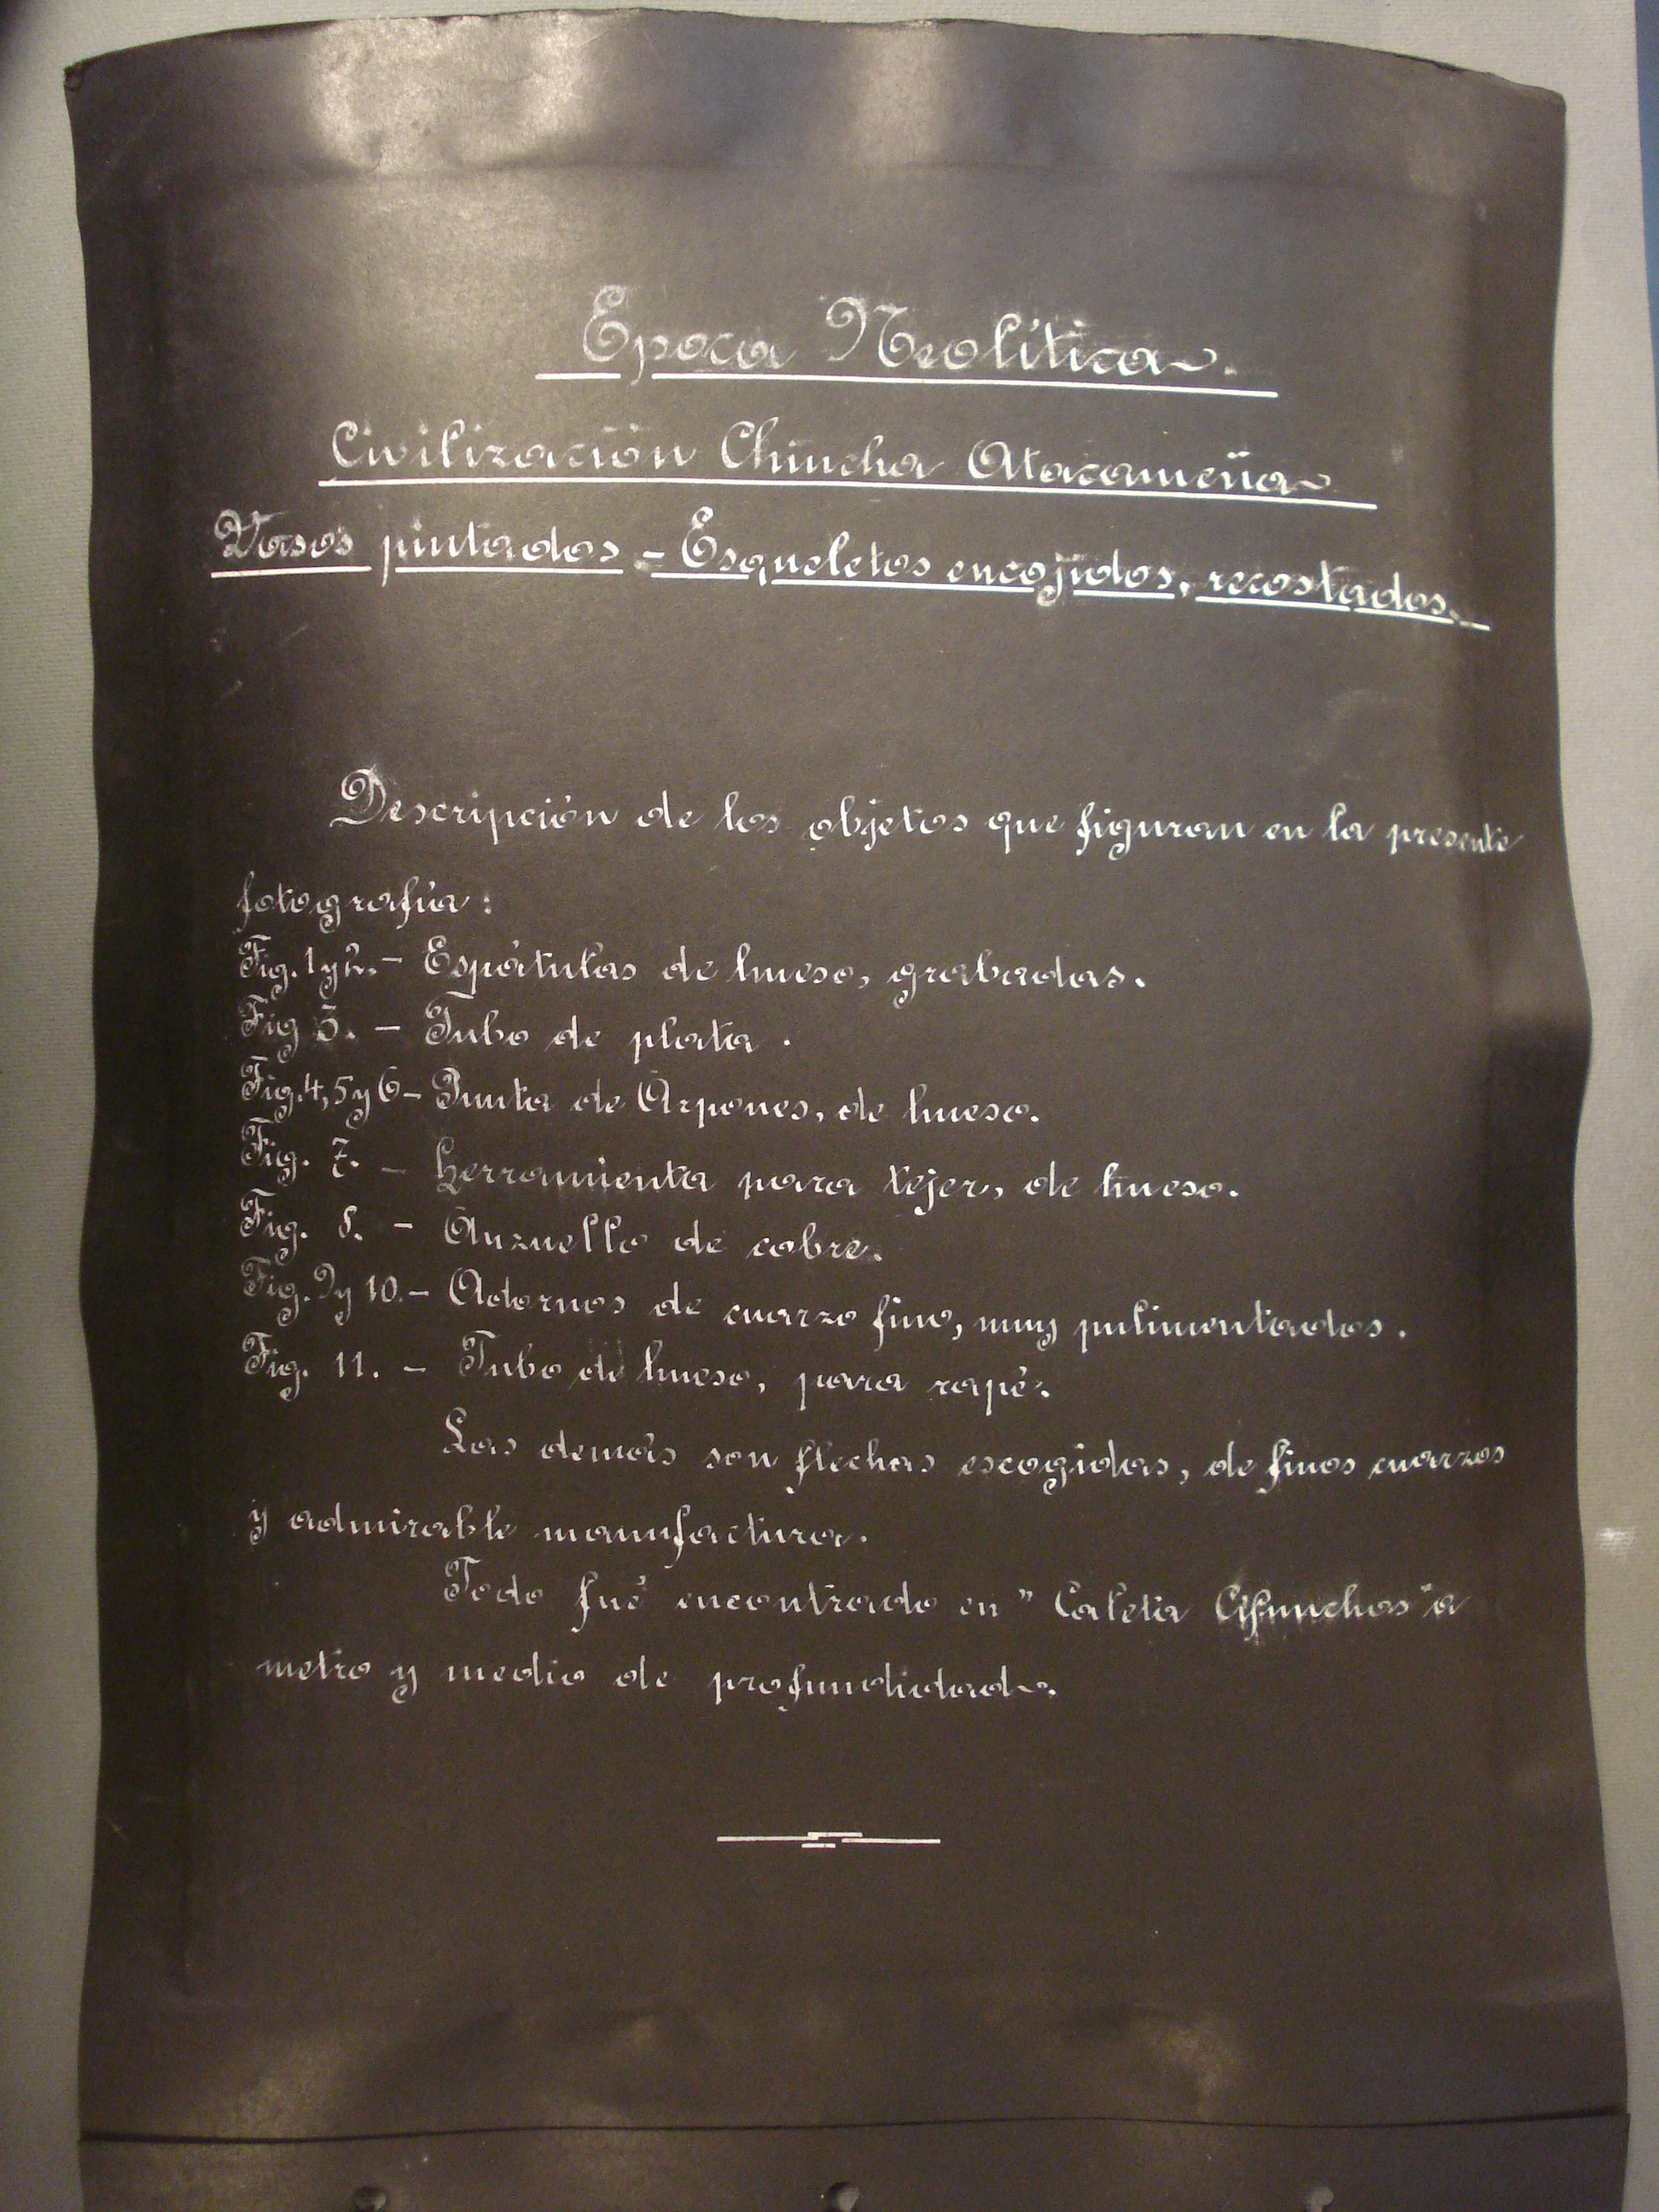 Epoca Neolítica.
Civilización Chincha Atacameña
Vasos pintados - Esqueletos encojidos, recostados.
Descripción de los objetos que figuran en la presente
fotografía:
Fig. 1 y 2. - Espátulas de hueso, grabadas.
Fig 3. - Tubo de plata.
Fig. 4, 5 y 6 - Punta de Arpones, de hueso.
Fig. 7. - Herramienta para tejer, de hueso.
Fig. 8. - Anzuello de cobre.
Fig. 9 y 10. - Adornos de cuarzo fino, muy pulimentados.
Fig. 11. - Tubo de hueso, para rapé.
Las demás son flechas escogidas, de finos cuarzos
y admirable manufactura.
Todo fué encontrado en "Caleta Cifunchos" a
metro y medio de profundidad.